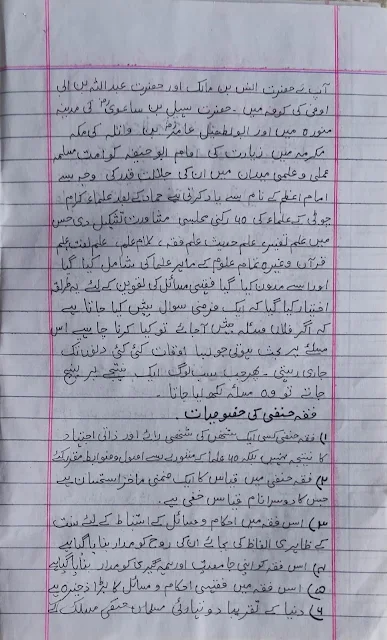 آپ نے حضرت انس بن مالک اور حضرت عبداللہ بن ابی
اوفی کی کوفہ میں۔ حضرت سہیل بن ساعدی کی مدینہ
منورہ میں اور ابوالطفیل عامر بن واثلہ کی مکہ
مکرمہ میں زیارت کی امام ابوحنیفہ کو امت مسلمہ
عملی و علمی میداں میں ان کی جلالت قدر کی وجہ سے
امام اعظم کے نام سے یاد کرتی ہے حماد کے بعد علماء کرام
چوٹی کے علماء کی ۴۰ رکنی مجلس مشاورت تشکیل دی جس
میں علم تفسیر، علم حدیث علم فقہ، کلام علم، علم لغت علم
قرآن وغیرہ تمام علوم کے ماہر علما کی شامل کیا گیا
اور اسے مدون کیا گیا فقہی مسائل کی تدوین کے لئے یہ طریقہ
اختیار کیا گیا کہ ایک فرضی سوال پیش کیا جاتا ہے
کہ اگر فلاں مسئلہ پیش آجائے تو کیا کرنا چاہیے اس
مسئلے پر بحث ہوتی جو بسا اوقات کئی کئی دنوں تک
جاری رہتی۔ پھر جب سب لوگ ایک نتیجے پر پہنچ
جاتے تو وہ مسئلہ لکھ لیا جاتا۔
فقہ حنفی کی خصوصیات۔
۱) فقہ حنفی کسی ایک شخص کی شخصی رائے اور ذاتی اجتہاد
کا نتیجہ نہیں بلکہ ۴۰ علماء کے مشورے سے اصول و ضوابط مقرر کئے
۲) فقہ حنفی میں قیاس کا ایک ضمنی ماخذ استحسان ہے
جس کا دوسرا نام قیاس خفی ہے۔
۳) اس فقہ میں احکام و مسائل کے استنباط کے لئے سنت
کے ظاہری الفاظ کی بجائے ان کی روح کو مدار بنایا گیا ہے
۴) اس فقہ کو اپنی جامعیت اور ہمہ گیری کو مدار بنایا گیا ہے
۵) اس فقہ میں فقہی احکام و مسائل کا بڑا ذخیرہ ہے
۶) دنیا کے تقریبا دو تہائی مسلمان حنفی مسلک کے